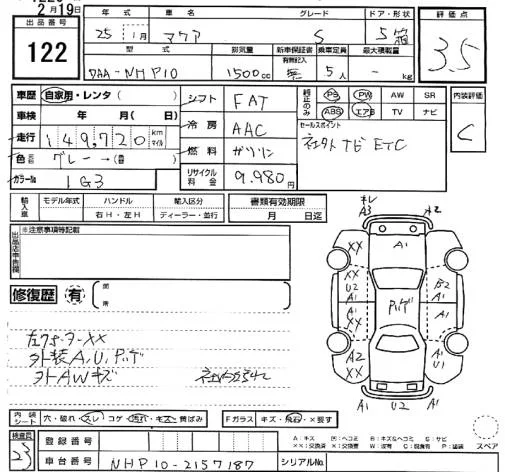 2月19日
出品番号 122
年式 車名 グレード ドア・形状 評価点
25年 1月 アクア S 5箱 3.5
型式 排気量 新車保証書 乗車定員 最大積載量
有無記入
DAA-NHP10 1500cc 5人 kg
車歴 自家用・レンタ( ) シフト FAT 純正のみ PS PW AW SR 内装評価
車検 年 月( 日) 冷房 AAC ABS エアB TV ナビ C
走行 149,720 km マイル 燃料 ガソリン セールスポイント
色 グレー→( ) リサイクル料金 9.980円 ナビ ETC
カラーNo 1G3
輸入車 モデル年式 ハンドル 輸入区分 書類有効期限
右H・左H ディーラー・並行 月 日迄
※注意事項等記載
修復歴 有 箇所
キレ
A3 A2
A1
XX XX
U2 B2
A1 A1
パハゲ
A1 A1
XX
A2 A1
XX U1
A1 U2 A1
外装A.U.
外AWキズ
内装シート 穴・破れ・スレ・コゲ・汚れ・キズ・黄ばみ Fガラス キズ・飛石・×要す スペア
A:キズ U:ヘコミ B:キズ&ヘコミ S:サビ
××:交換済 ×:要交換 W:波有 C:腐食有 P:塗装
検査員 23 登録番号
車台番号 NHP10-2157187 シリアルNo.